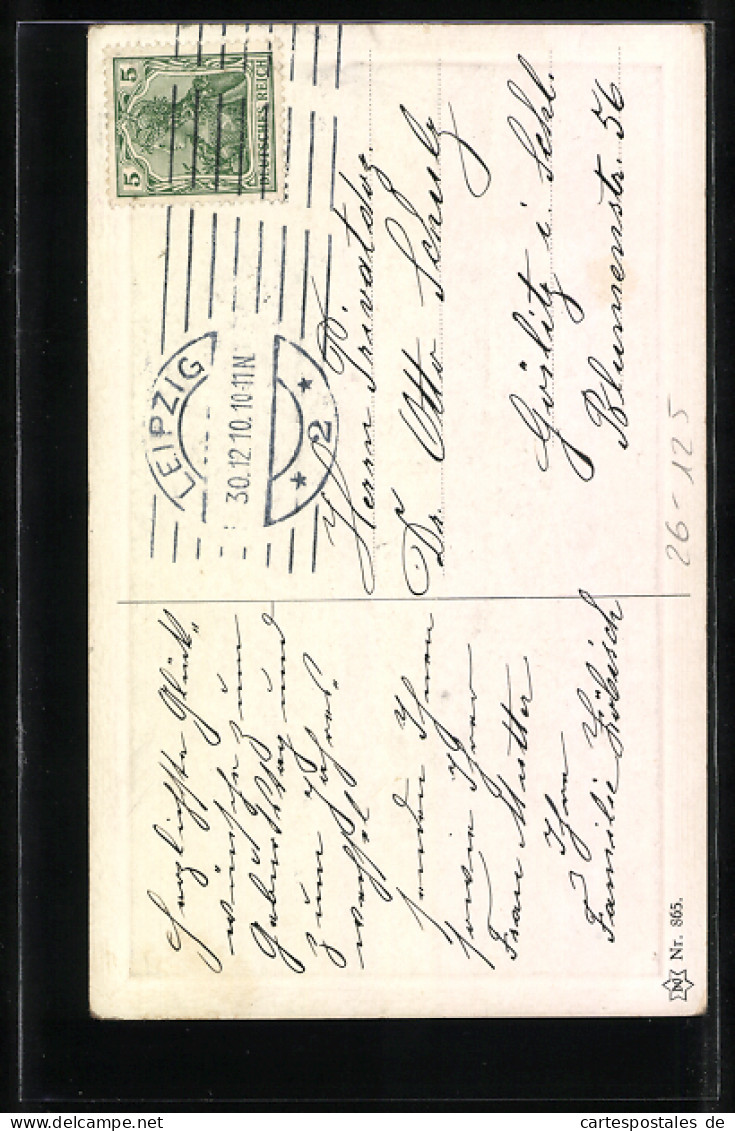 5 5
DEUTSCHES REICH
LEIPZIG
30.12.10.10-11N
* 2 *
Herrn Privatdoz.
Dr. Otto Schulz
Görlitz i. Schl.
Blumenstr. 56
26-125
Herzlichste Glück-
wünsche zum
Geburtstag und
zum Jahres-
wechsel
senden Ihnen
sowie Ihrer
Frau Mutter
Ihre
Familie Zöbisch
Nr. 865.
cartespostales de